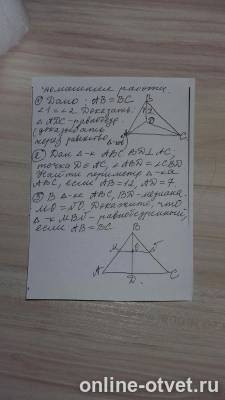 домашняя работа.
① Дано: AB=BC
∠1=∠2 Доказать:
△ ADC-равнобедр.
(доказывать
через равенство
△-ков)
B
1 2
D
A C
② Дан △-к ABC BD⊥AC,
точка D∈AC, ∠ABD=∠CBD
Найти периметр △-ка
ABC, если AB=12, AD=7.
③ В △-ке ABC, BD-медиана
MO=NO. Докажите, что
△-к MBN-равнобедренный,
если AB=BC.
B
M O N
A D C
online-otvet.ru